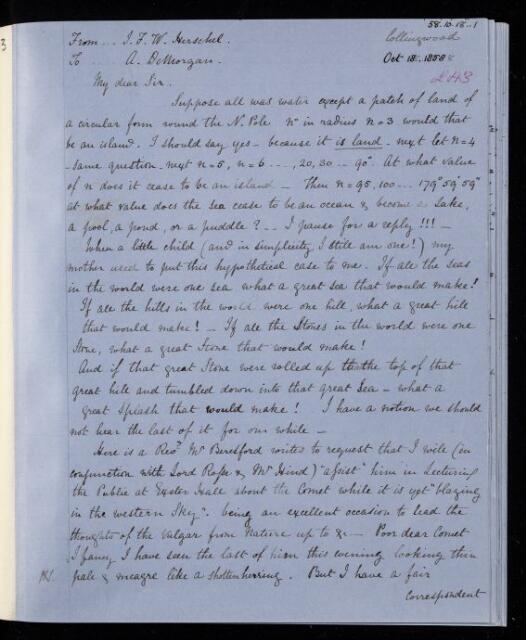 58.10.18..1
From... J. F. W. Herschel.
Collingwood
To ..... A. DeMorgan.
Oct 18. 1858
243
My dear Sir.
Suppose all was water except a patch of land of
a circular form round the N. Pole n° in radius n=3 would that
be an island. I should say yes - because it is land - next let n=4
- same question - next n=5, n=6 ...., 20, 30 .. 90°. At what value
of n does it cease to be an island - Then n=95, 100 ... 179° 59' 59"
at what value does the sea cease to be an ocean & become a Lake,
a pool, a pond, or a puddle? .. I pause for a reply!!! -
When a little child (and in simplicity I still am one!) my
mother used to put this hypothetical case to me. If all the seas
in the world were one sea what a great sea that would make!
If all the hills in the world were one hill, what a great hill
that would make! - If all the Stones in the world were one
Stone, what a great Stone that would make!
And if that great Stone were rolled up to the top of that
great hill and tumbled down into that great Sea - what a
great Splash that would make! I have a notion we should
not hear the last of it for one while -
Here is a Revd. Mr Beresford writes to request that I will (in
conjunction with Lord Rosse & Mr Hind) "assist" him in Lecturing
the Public at Exeter Hall about the Comet while it is yet "blazing
in the western Sky". being an excellent occasion to lead the
thoughts of the vulgar from Nature up to &c - Poor dear Comet
I fancy I have seen the last of him this evening looking thin
pale & meagre like a shotten herring. But I have a fair
correspondent